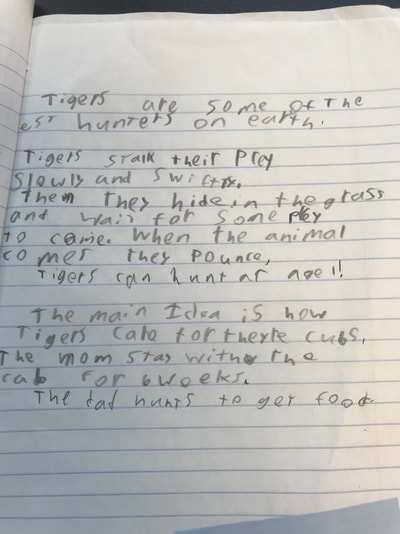 Tigers are some of the
est hunters on earth.
Tigers stalk their Prey
Slowly and
Then They hide in the grass
and wait for some prey
to come. When the animal
comes they Pounce,
Tigers can hunt at age 1!
The main Idea is how
Tigers Care for theyre cubs.
The mom stay with the
cab for 6 weeks.
The dad hunts to get food.